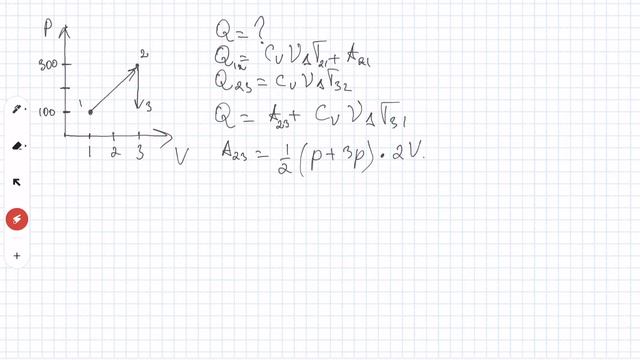 P
300
100
1
2
3
1 2 3 V
Q = ?
Q₁₂ = Cᵥ ν ΔT₂₁ + A₂₁
Q₂₃ = Cᵥ ν ΔT₃₂
Q = A₂₃ + Cᵥ ν ΔT₃₁
A₂₃ = 1/2 (p + 3p) · 2V.